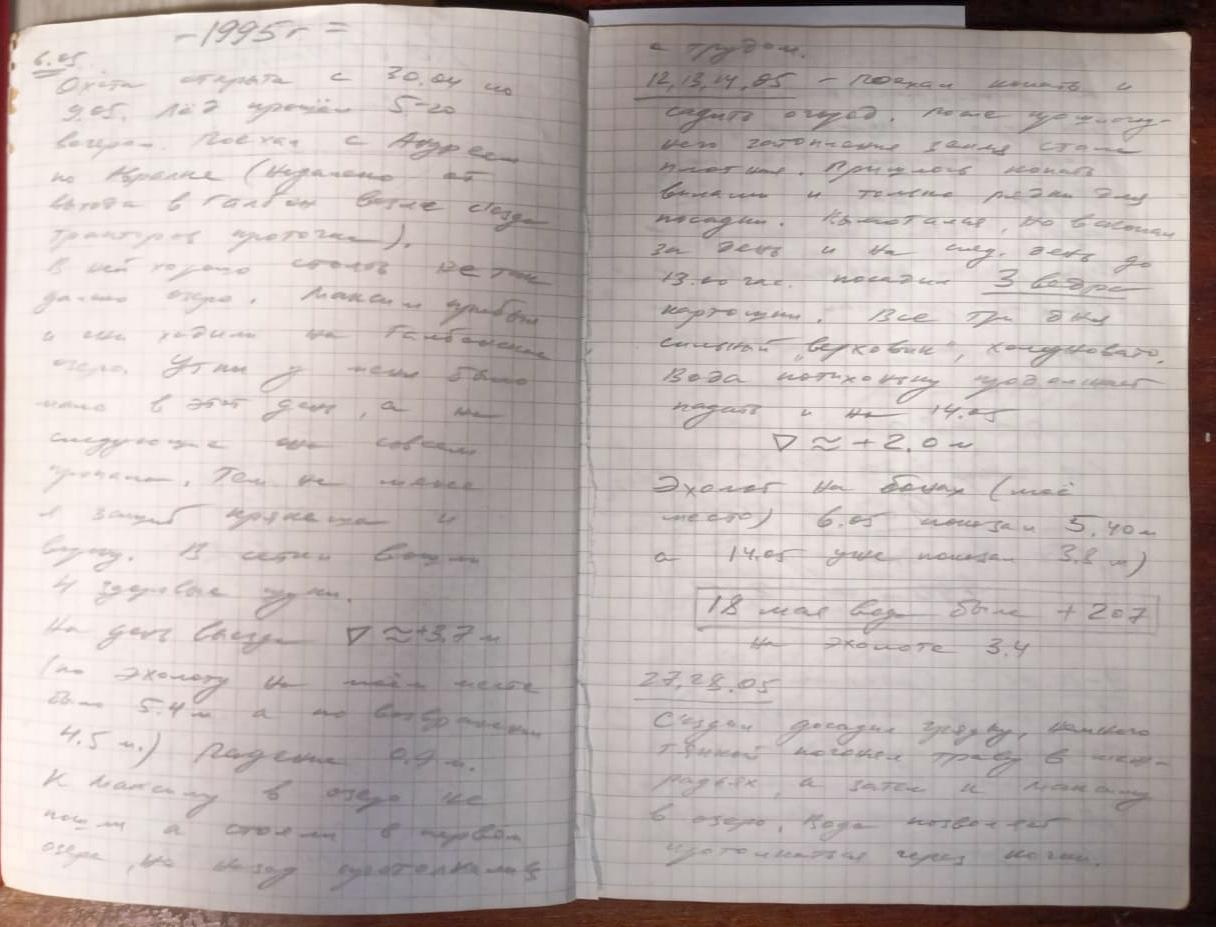 - 1995 г =
6.05.
Охота открыта с 30.04 по
9.05. Лёд прошёл 5-го
вечером. Поехал с Андреем
по (недалеко от
выхода в Галбон возле съезда
тракторов проточка).
В ней хорошо стоять не так
далеко озеро. Максим прибыл
и они ходили на Галбонское
озеро. Утки у меня было
мало в этот день, а на
следующие она совсем
пропала. Тем не менее
я и
В сетки вошли
4 здоровые щуки.
На день выезда ▽ ≈ +3,7 м
(по эхолоту на моём месте
было 5.4 м а по возвращении
4.5 м.) падение 0.9 м.
К Максиму в озеро не
пошли а стояли в первом
озере, но назад протолкались
с трудом.
12,13,14.05 - Поехал копать и
садить огород. После прошлогод-
него затопления земля стала
плотная. Пришлось копать
вилами и только рядки для
посадки. Вымотался, но вскопал
за день и на след. день до
13.00 час. посадил 3 ведра
картошки. Все три дня
сильный "верховик", холодновато.
Вода потихоньку продолжает
падать и на 14.05
▽ ≈ +2.0 м
Эхолот на (моё
место) 6.05 показал 5,40 м
а 14.05 уже показал 3.8 м)
18 мая вода была +207
на эхолоте 3.4
27,28.05
Съездил досадил грядку, немного
тяпкой погонял траву в меж-
рядьях, а затем к Максиму
в озеро. Вода позволяет
протолкаться через кочки.